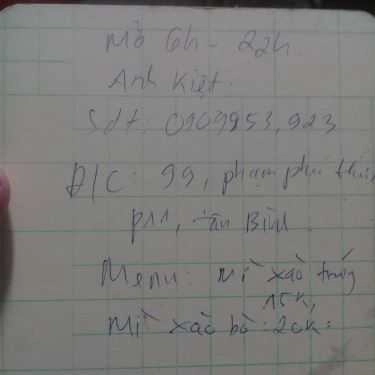 Mở 6h - 22h
Anh Kiệt.
Sdt: 0909953,923
Đ/C: 99, phạm phú thứ
p11, Tân Bình.
Menu: mì xào trứng
15K,
Mì xào bò: 20K: